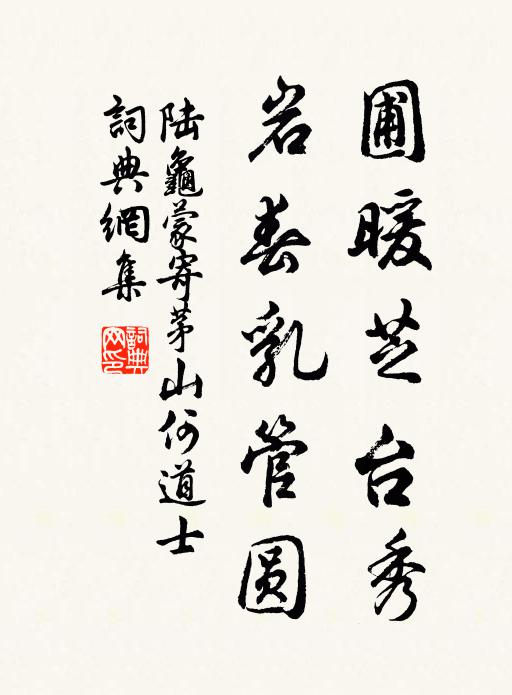 圃暖芝台秀
岩春乳管圆
陆龜蒙寄茅山何道士
詞典網集
詞典
网印